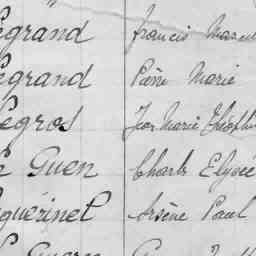 egrand Francis Marce
egrand Pierre Marie
egros Jean Marie Théoph
e Guen Charles Elysée
guérinel Arsène Paul